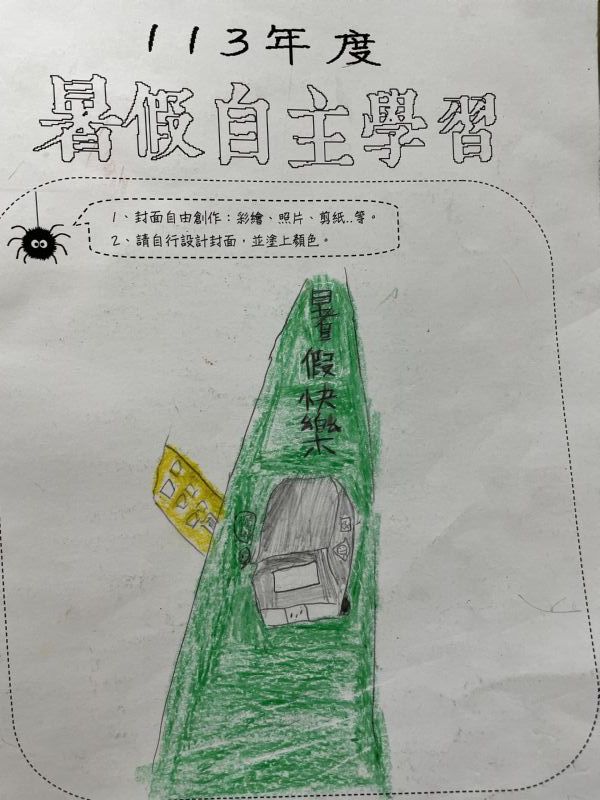 113年度
暑假自主學習
1、封面自由創作：彩繪、照片、剪紙..等。
2、請自行設計封面，並塗上顏色。
暑假快樂